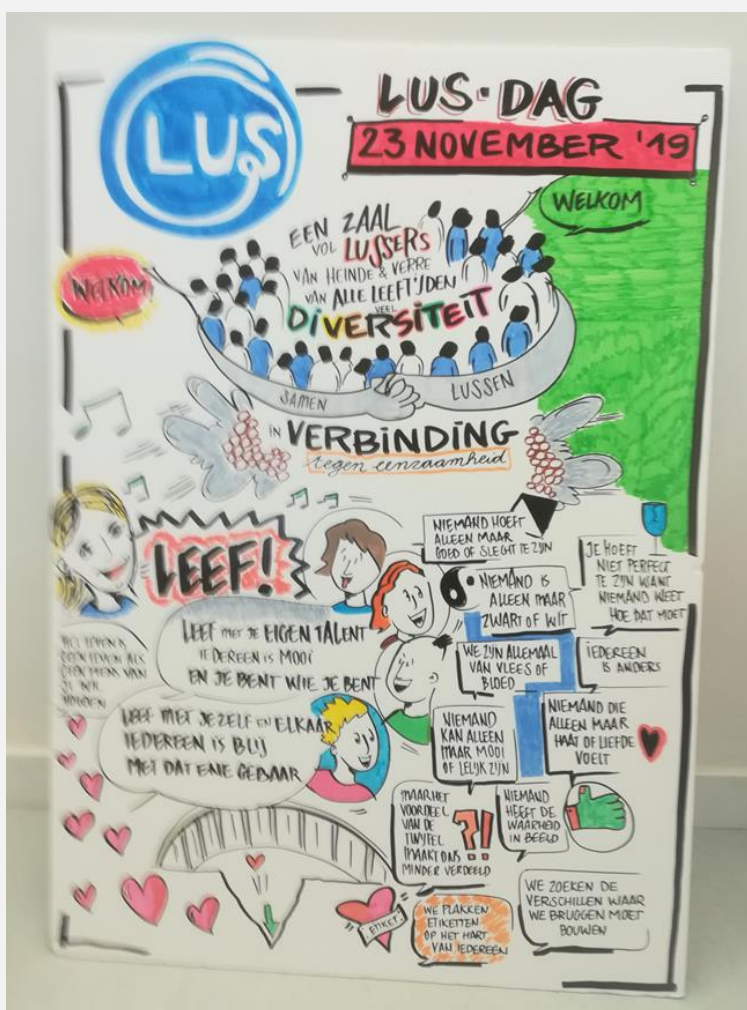 LUS
LUS·DAG
23 NOVEMBER '19
WELKOM
WELKOM
EEN ZAAL
VOL LUSSERS
VAN HEINDE & VERRE
VAN ALLE LEEFTIJDEN
VEEL
DIVERSITEIT
SAMEN
LUSSEN
IN VERBINDING
tegen eenzaamheid
LEEF!
LEEF MET JE EIGEN TALENT
IEDEREEN IS MOOI
EN JE BENT WIE JE BENT
HET LEVEN IS
GEEN LEVEN ALS
GEEN MENS VAN
JE WIL
HOUDEN
LEEF MET JEZELF EN ELKAAR
IEDEREEN IS BLIJ
MET DAT ENE GEBAAR
NIEMAND HOEFT
ALLEEN MAAR
GOED OF SLECHT TE ZIJN
JE HOEFT
NIET PERFECT
TE ZIJN WANT
NIEMAND WEET
HOE DAT MOET
NIEMAND IS
ALLEEN MAAR
ZWART OF WIT
WE ZIJN ALLEMAAL
VAN VLEES OF
BLOED
IEDEREEN
IS ANDERS
NIEMAND
KAN ALLEEN
MAAR MOOI
OF LELIJK ZIJN
NIEMAND DIE
ALLEEN MAAR
HAAT OF LIEFDE
VOELT
MAAR HET
VOORDEEL
VAN DE
TWIJFEL
MAAKT ONS
MINDER VERDEELD
?!
NIEMAND
HEEFT DE
WAARHEID
IN BEELD
ETIKET
WE PLAKKEN
ETIKETTEN
OP HET HART
VAN IEDEREEN
WE ZOEKEN DE
VERSCHILLEN WAAR
WE BRUGGEN MOET
BOUWEN